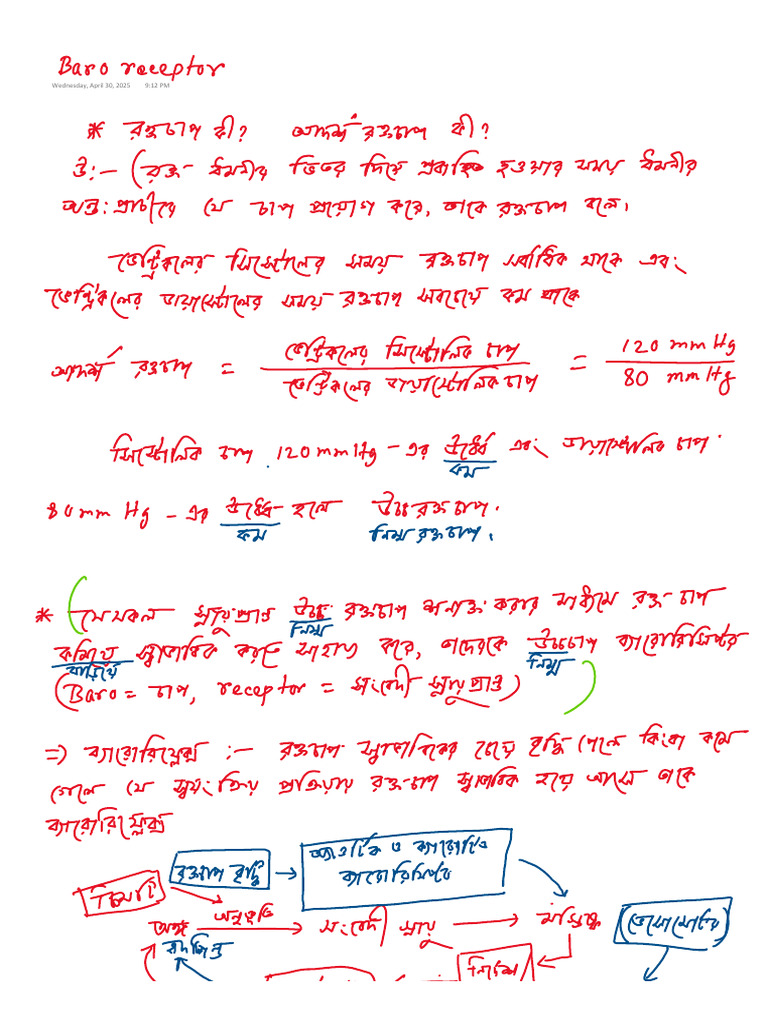 Baro receptor
Wednesday, April 30, 2025 9:12 PM
* রক্তচাপ কী? আদর্শ রক্তচাপ কী?
উ:- (রক্ত ধমনীর ভিতর দিয়ে প্রবাহিত হওয়ার সময় ধমনীর
অন্ত:প্রাচীরে যে চাপ প্রয়োগ করে, তাকে রক্তচাপ বলে।
ভেন্ট্রিকলের সিস্টোলের সময় রক্তচাপ সর্বাধিক থাকে এবং
ভেন্ট্রিকলের ডায়াস্টোলের সময় রক্তচাপ সবচেয়ে কম থাকে
আদর্শ রক্তচাপ = ভেন্ট্রিকলের সিস্টোলিক চাপ / ভেন্ট্রিকলের ডায়াস্টোলিক চাপ = 120 mmHg / 80 mmHg
সিস্টোলিক চাপ 120mmHg -এর উর্ধ্বে এবং ডায়াস্টোলিক চাপ
কম
80mm Hg -এর উর্ধ্বে হলে উচ্চ রক্তচাপ।
কম নিম্ন রক্তচাপ।
* যেসকল স্নায়ুপ্রান্ত উচ্চ রক্তচাপ শনাক্ত করার মাধ্যমে রক্ত চাপ
নিম্ন
কমিয়ে স্বাভাবিক করতে সাহায্য করে, তাদেরকে উচ্চচাপ ব্যারোরিসিপ্টর
বাড়িয়ে নিম্ন
(Baro = চাপ, receptor = সংবেদী স্নায়ুপ্রান্ত)
=> ব্যারোরিফ্লেক্স :- রক্তচাপ স্বাভাবিকের চেয়ে বৃদ্ধি পেলে কিংবা কমে
গেলে যে স্বয়ংক্রিয় প্রতিক্রিয়ায় রক্তচাপ স্বাভাবিক হয়ে আসে তাকে
ব্যারোরিফ্লেক্স
রক্তচাপ বৃদ্ধি → অ্যাওর্টিক ও ক্যারোটিড
ব্যারোরিসিপ্টর
অঙ্গ অনুভূতি → সংবেদী স্নায়ু → মস্তিষ্ক
হৃদপিন্ড
নির্দেশ